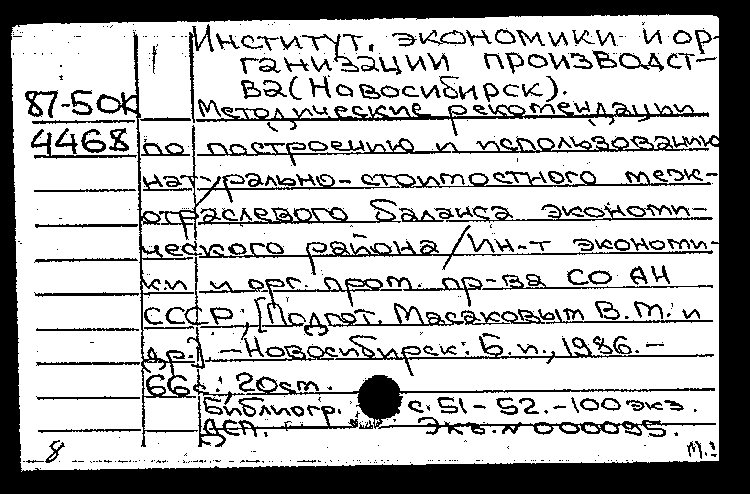 Институт экономики и ор-
ганизации производст-
ва (Новосибирск).
87-50К Методические рекомендации
4468 по построению и использованию
натурально-стоимостного меж-
отраслевого баланса экономи-
ческого района / Ин-т экономи-
ки и орг. пром. пр-ва СО АН
СССР; [Подгот. Масаковым В.М. и
др.] - Новосибирск: Б.и., 1986. -
66 с.; 20 см.
Библиогр. с. 51-52. - 100 экз.
ДСП. Экз. № 000095.
8